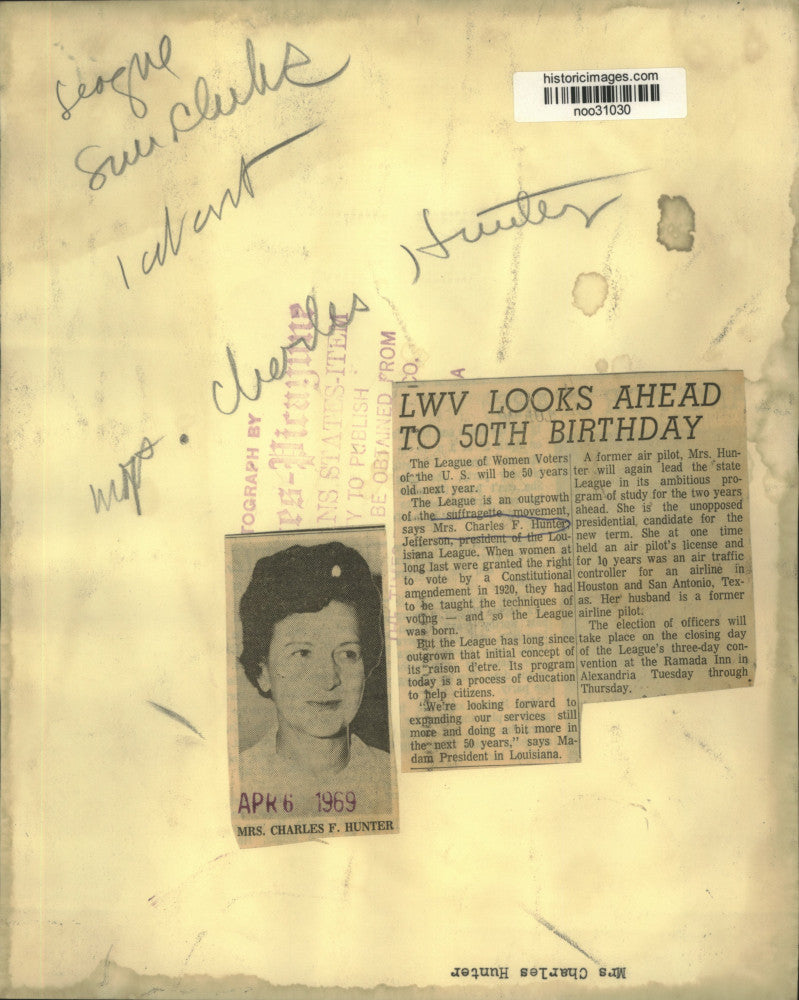 historicimages.com
noo31030
League
Sun clubs
1
Hunter
Mrs. Charles
TOGRAPH BY
es-Picayune
NS STATES-ITEM
Y TO PUBLISH
BE OBTAINED FROM
CO.
A
LWV LOOKS AHEAD
TO 50TH BIRTHDAY
The League of Women Voters
of the U. S. will be 50 years
old next year.
The League is an outgrowth
of the suffragette movement,
says Mrs. Charles F. Hunter
Jefferson, president of the Lou-
isiana League. When women at
long last were granted the right
to vote by a Constitutional
amendement in 1920, they had
to be taught the techniques of
voting — and so the League
was born.
But the League has long since
outgrown that initial concept of
its raison d'etre. Its program
today is a process of education
to help citizens.
"We're looking forward to
expanding our services still
more and doing a bit more in
the next 50 years," says Ma-
dam President in Louisiana.
A former air pilot, Mrs. Hun-
ter will again lead the state
League in its ambitious pro-
gram of study for the two years
ahead. She is the unopposed
presidential candidate for the
new term. She at one time
held an air pilot's license and
for 10 years was an air traffic
controller for an airline in
Houston and San Antonio, Tex-
as. Her husband is a former
airline pilot.
The election of officers will
take place on the closing day
of the League's three-day con-
vention at the Ramada Inn in
Alexandria Tuesday through
Thursday.
APR 6 1969
MRS. CHARLES F. HUNTER
Mrs Charles Hunter